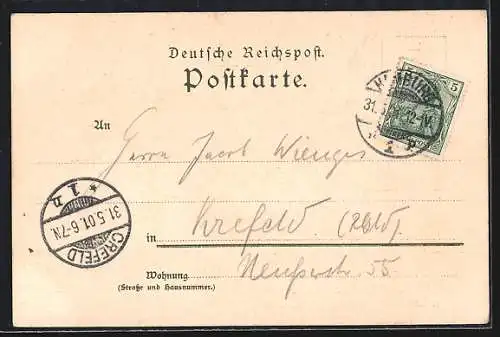 Deutsche Reichspost.
Postkarte.
5
31.5.
12-1V.
1
An
Herrn Jacob Wienges
* 1 n
31.5.01.6-7N.
CREFELD
in Krefeld (Rhld).
Wohnung Neußerstr 55
(Straße und Hausnummer.)